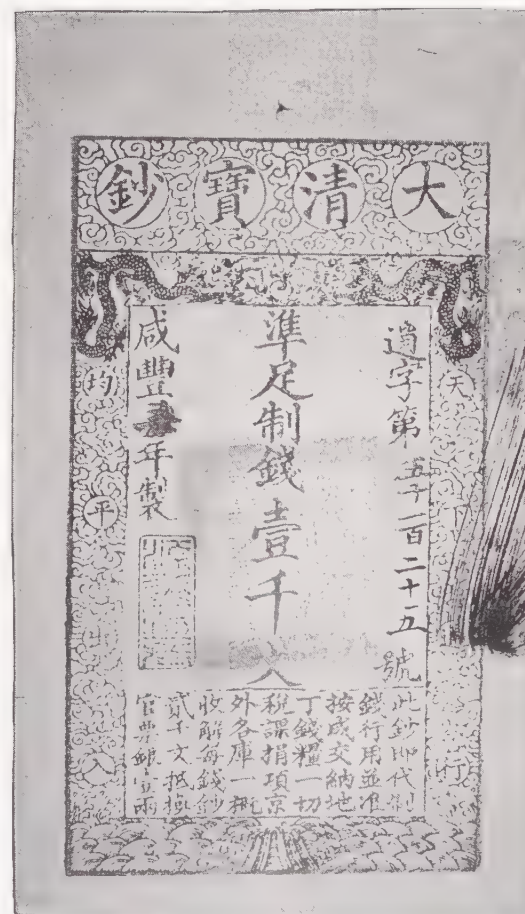 大清寶鈔
天下 行
字第五千一百二十五號
準足制錢壹千文
咸豐 年製
均平出入
此鈔即代制
錢行用並准
按成交納地
丁錢糧一切
稅課捐項京
外各庫一概
收解每錢鈔
貳千文抵換
官票銀壹兩